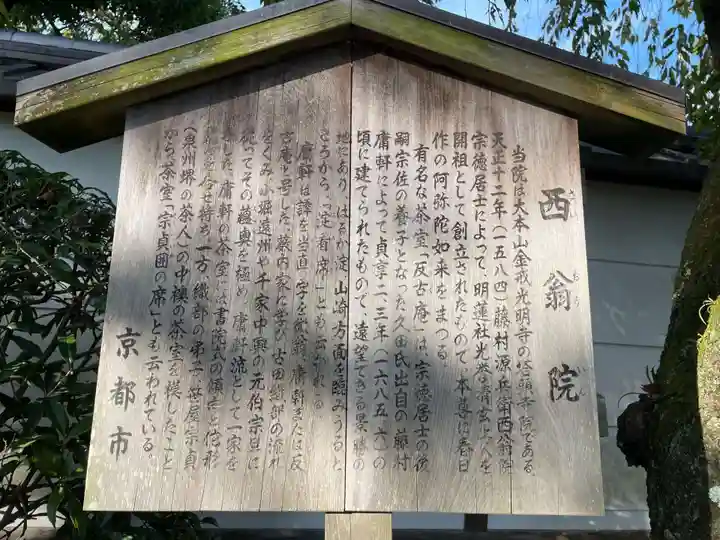 西翁院
さい おう いん
当院は大本山金戒光明寺の塔頭寺院である。
天正十二年(一五八四)藤村源兵衛西翁院
宗徳居士によって、明蓮社光誉清玄上人を
開祖として創立されたもので、本尊に春日
作の阿弥陀如来をまつる。
有名な茶室「反古庵」は、宗徳居士の後
嗣宗佐の養子となった久田氏出自の藤村
庸軒によって貞享二・三年(一六八五、六)の
頃に建てられたもので、遠望できる景勝の
地にあり、はるか淀、山崎方面を臨みうると
ころから、「淀看席」とも云われる。
庸軒は諱を当直、字を微翁、庸軒または反
古庵と号した。藪内家に学び古田織部の流れ
をくみ、小堀遠州や千家中興の元伯宗旦に
就てその薀奥を極め、庸軒流として一家を
した。庸軒の茶室には書院式の傾向と佗形
を合せ持ち、一方、織部の弟子、笹屋宗貞
(泉州堺の茶人)の中襖の茶室を模したこと
から茶室「宗貞囲の席」とも云われている。
京都市